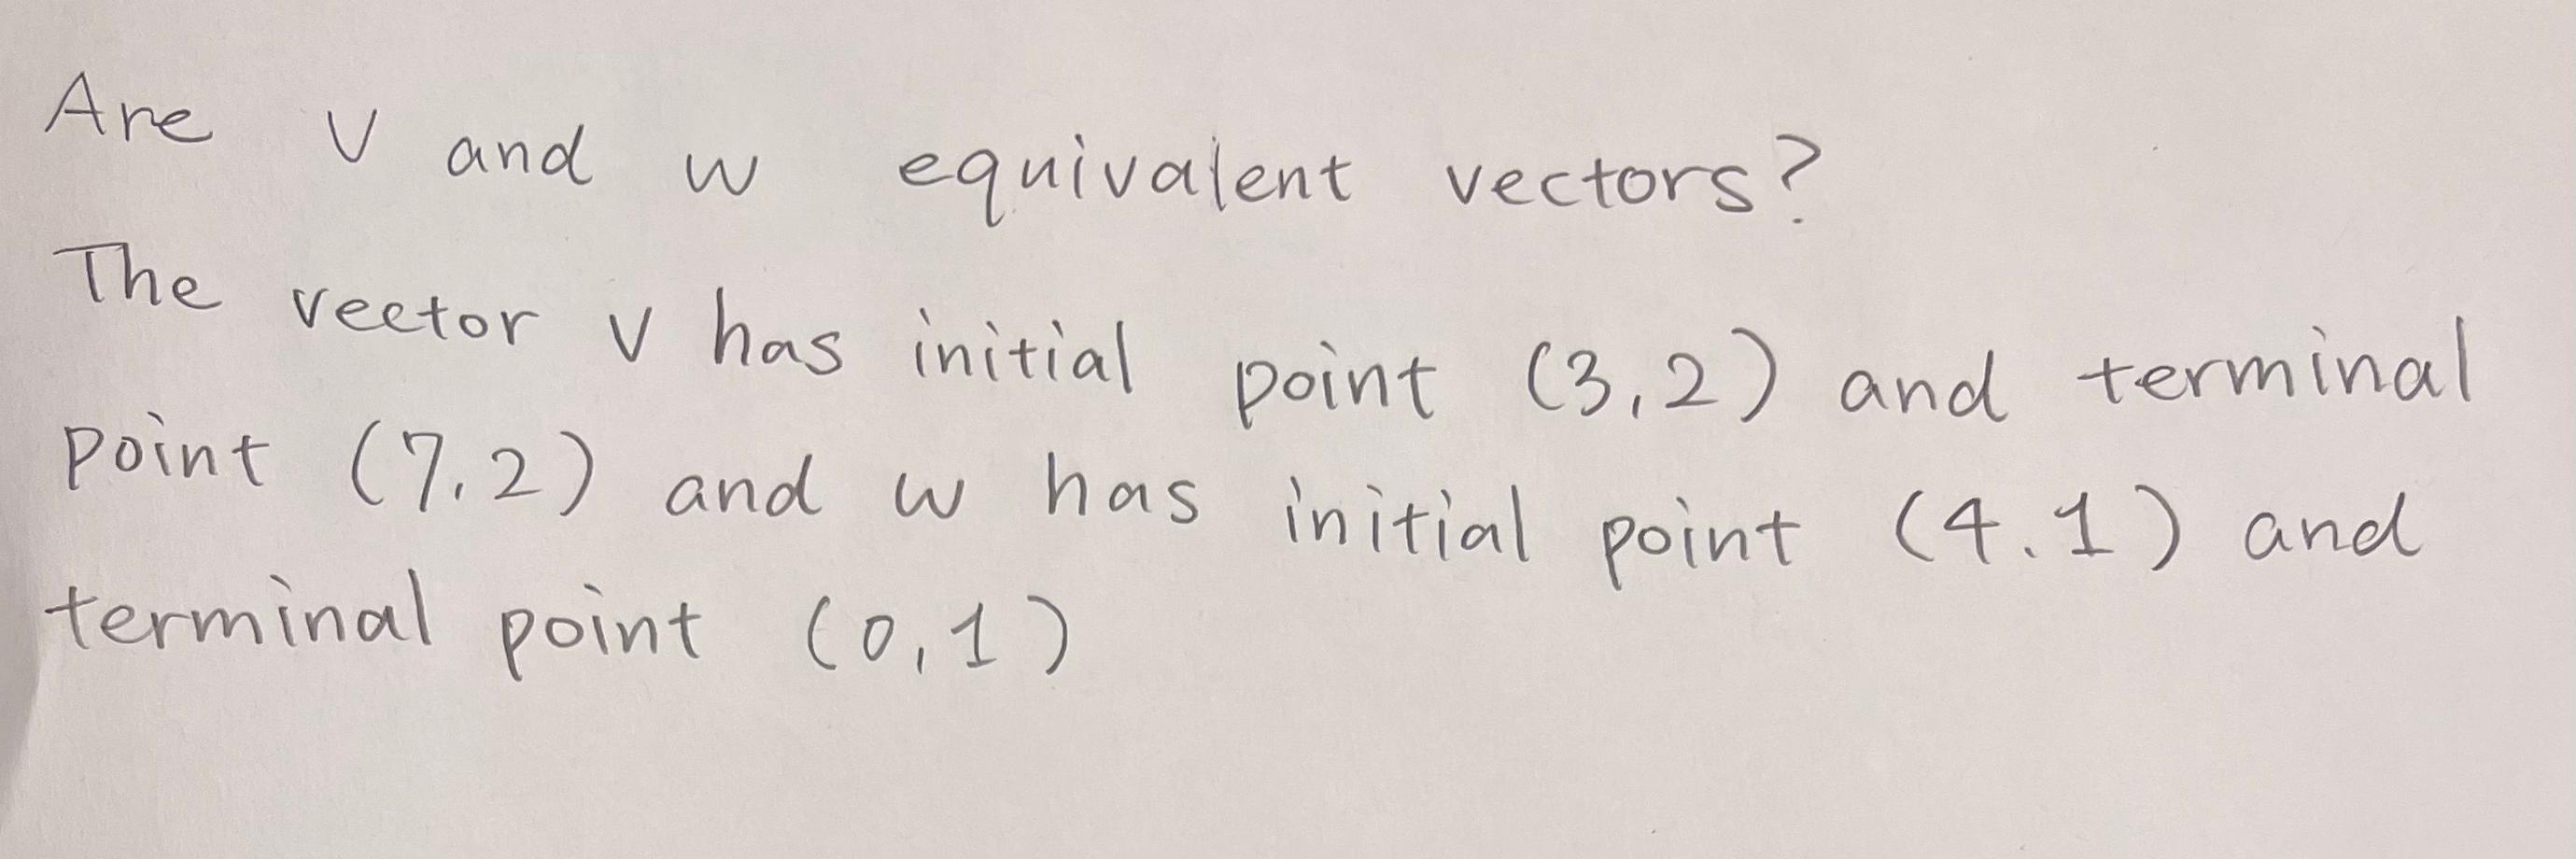 Are v and w equivalent vectors?
The vector v has initial point (3,2) and terminal
point (7,2) and w has initial point (4.1) and
terminal point (0,1)